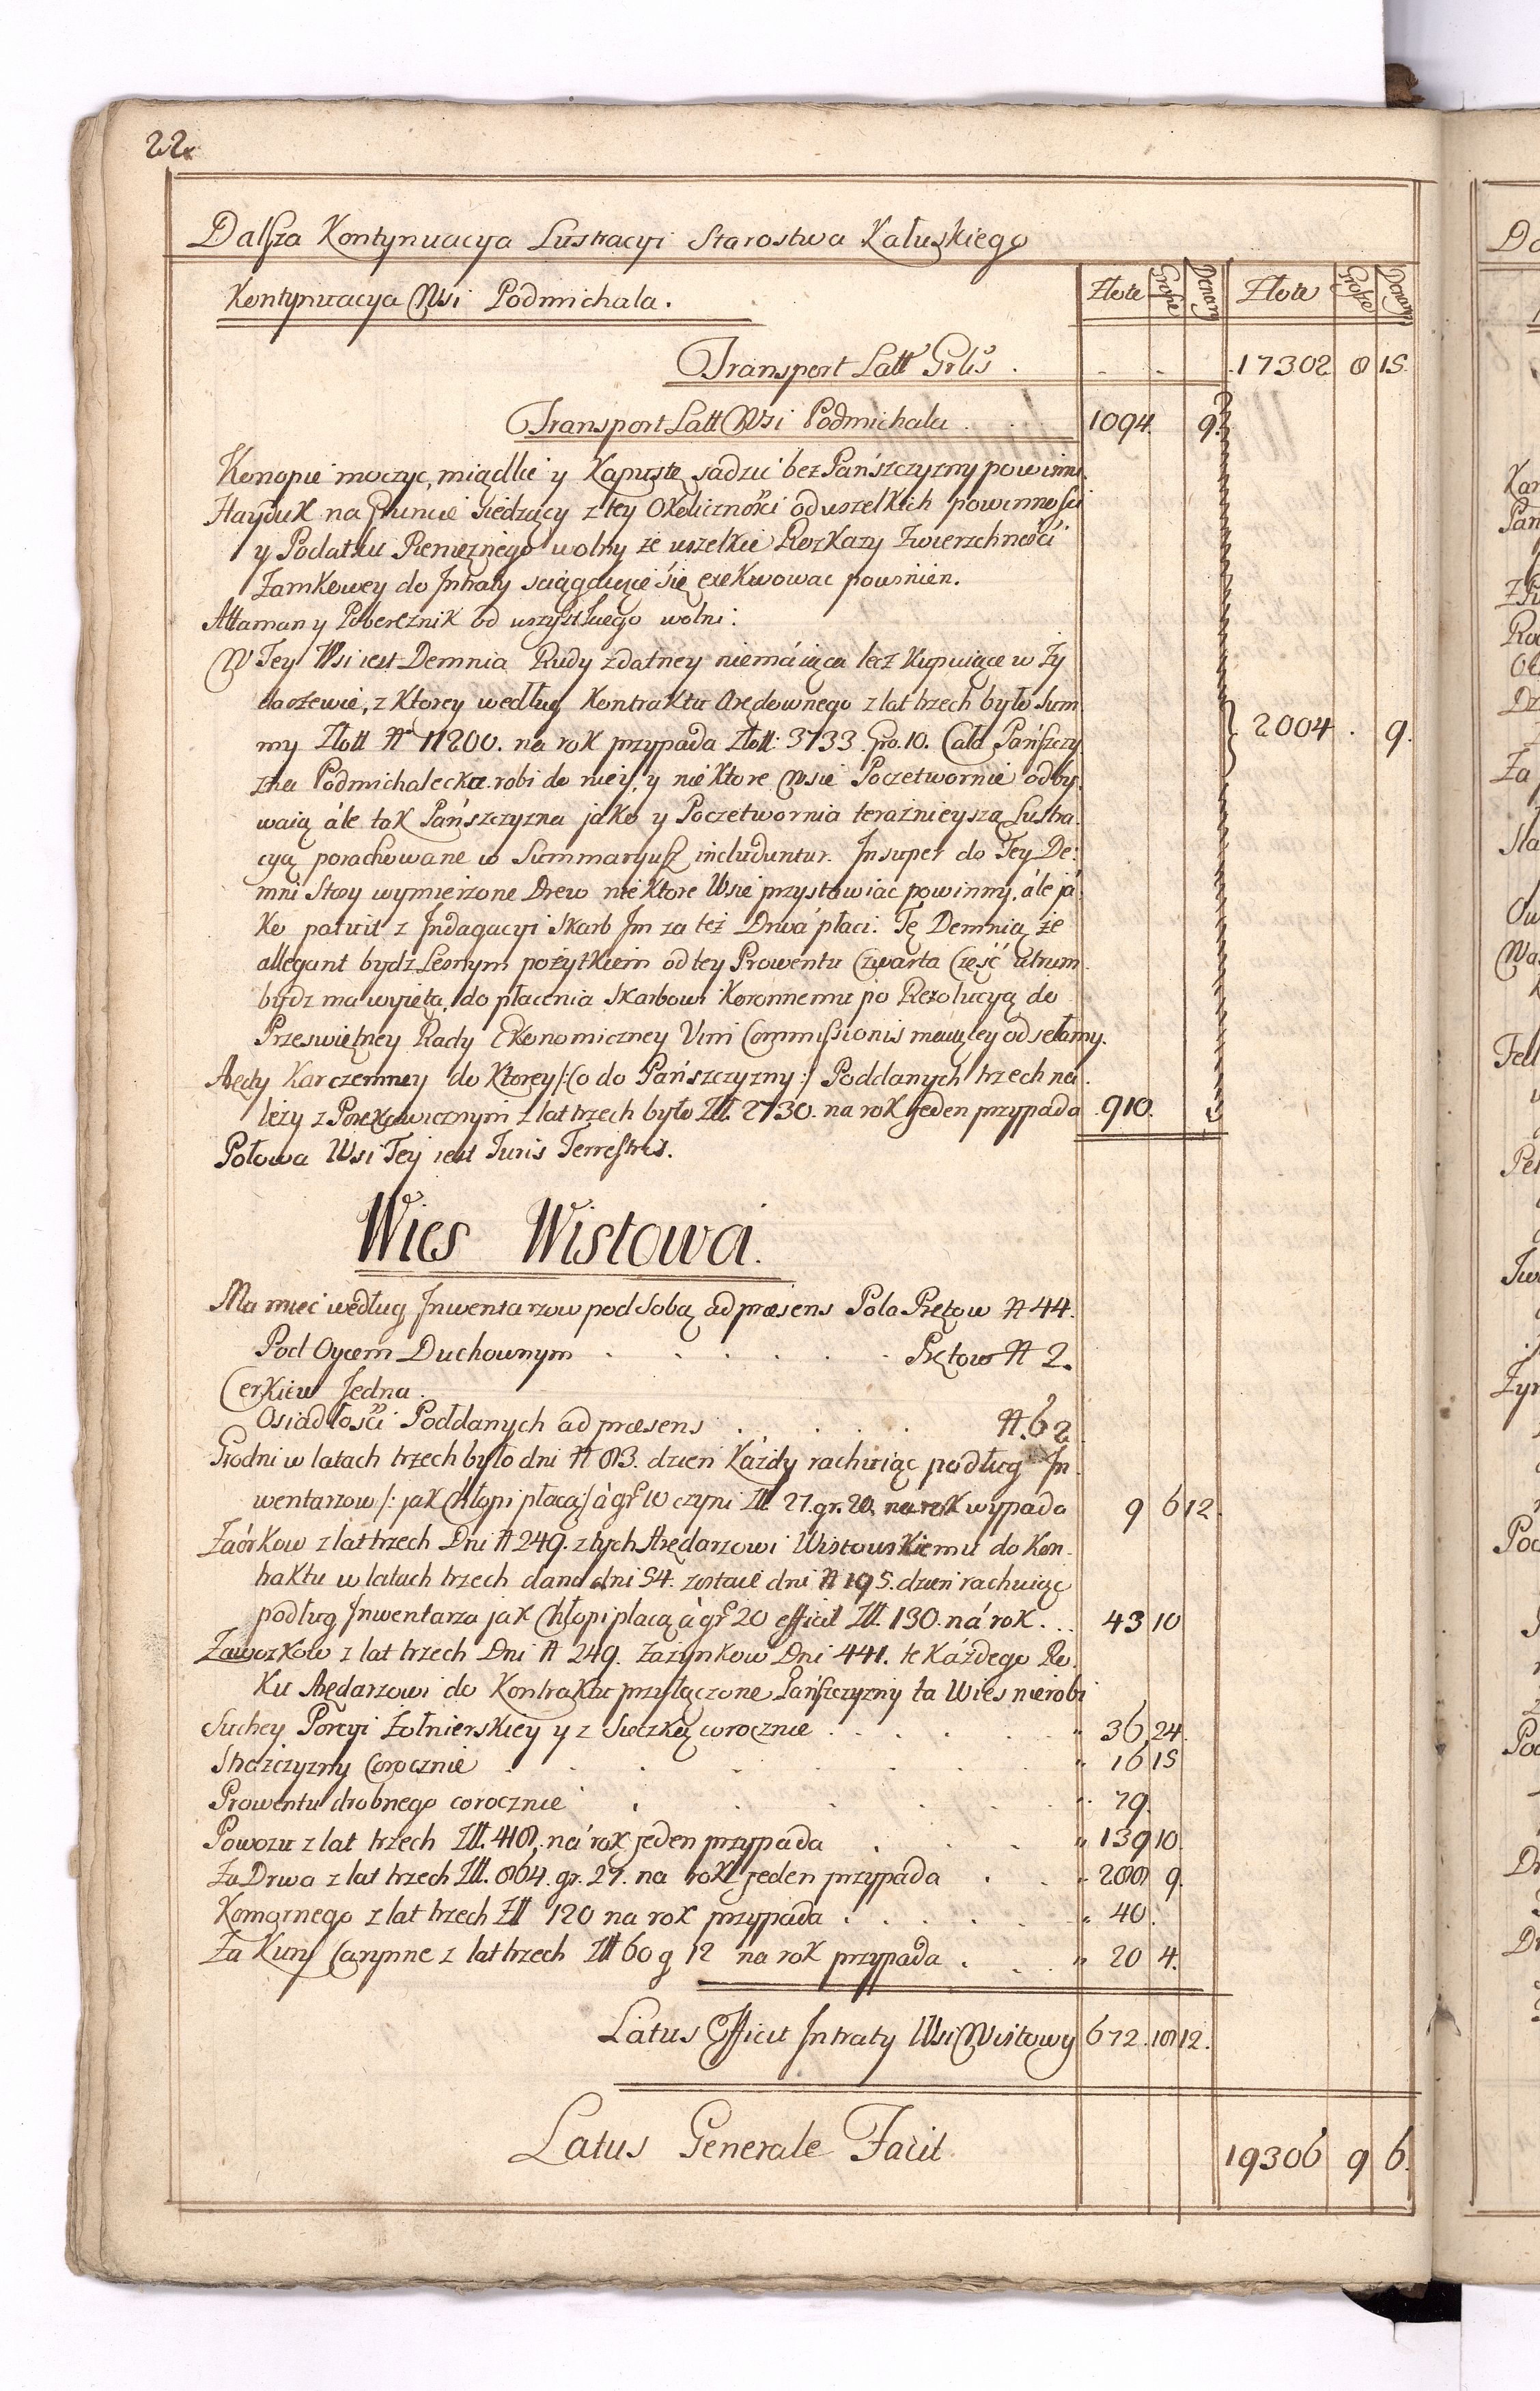 22.
Dalsza Kontynuacya Lustracyi Starostwa Kałuskiego
Kontynuacya Wsi Podmichala. Złote Grosze Denary Złote Grosze Denary
Transport Latt Grlis . - - 17302 8 15.
Transport Latt Wsi Podmichala . . 1094. 9.
Konopie moczyc, miądlic y Kapustę sadzic bez Pańszczyzny powinni.
Hayduk na Gruncie siedzący z tey Okolicznosci od wszelkich powinnosci
y Podatku Pienięznego wolny ze wszelkie Rozkazy Zwierzchności
Zamkowey do Intraty sciągaiące się exekwowac powinien.
Attaman y Pobereznik od wszystkiego wolni:
W Tey Wsi iest Demnia Rudy zdatney niemaiąca lecz kupuiąca w Zy
daczewie, z Ktorey według Kontraktu Arędownego z lat trzech było Sum
my Złott N 11200. na rok przypada Złott: 3733. Gro. 10. Cała Pańszczy
zna Podmichalecka robi do niey, y nie ktore Wsie Poczetwornie odby. 2004 . 9.
waią ále tak Pańszczyzna jako y Poczetwornia teraznieyszą Lustra.
cyą porachowane w Summaryusz includuntur. Insuper do Tey De:
mni Stosy wymierzone Drew nie ktore Wsie przystawiac powinny, ále já
ko patuit z Indagacyi Skarb Jm za też Drwa płaci. Tę Demnią że
allegant bydz Lesnym pożytkiem od tey Prowentu Czwarta Część utrum
bydz ma wyięta, do płacenia Skarbowi Koronnemu po Rezolucyą do
Przeswiętney Rady Ekonomiczney Vim Commissionis maiącey odsełamy.
Arędy Karczemney do Ktorey /: Co do Pańszczyzny :/ Poddanych trzech na.
leży z Porękawicznym z lat trzech było Zll. 2730. na rok jeden przypada 910.
Połowa Wsi Tey iest Juris Terrestris.
Wies Wistowa.
Ma miec według Inwentarzow pod Sobą ad præsens Pola Prętow N 44.
Pod Oycem Duchownym . . . . . . Prętow N 2.
Cerkiew Jedna.
Osiadłości Poddanych ad præsens . . . . N. 62
Grodni w latach trzech było dni N 83. dzien Każdy rachuiąc podług In
wentarzow /: jak Chłopi płacą :/ á gr 10 czyni Zll. 27. gr. 20. na rok wypada 9 6 12.
Zaórkow z lat trzech Dni N 249. z tych Arędarzowi Wistowskiemu do Kon.
traktu w latach trzech dano dni 54. zostaie dni N 195. dzien rachuiąc
podług Inwentarza jak Chłopi płacą á gr 20 efficit Zll. 130. ná rok . . . 43 10
Zawozkow z lat trzech Dni N 249. Zażynkow Dni 441. te Każdego Ro.
ku Arędarzowi do Kontraktu przyłączone Pańszczyzny ta Wies nierobi
Suchey Porcyi Zołnierskiey y z Sieczką corocznie . . . . . „ 36 24.
Strożczyzny Corocznie . . . . . . . „ 16 15
Prowentu drobnego corocznie . . . . . „ 79.
Powozu z lat trzech Zll. 418, ná rok jeden przypada . . . „ 139 10.
Za Drwa z lat trzech Zll. 864. gr. 27. na rok jeden przypada . . „ 288 9.
Komornego z lat trzech Zll 120 na rok przypada . . . . . . „ 40.
Za Kury Carynne z lat trzech Zll 60 g 12 na rok przypada . . . „ 20 4.
Latus Efficit Intraty Wsi Wistowy 672. 18 12.
Latus Generale Facit 19306 9 6.